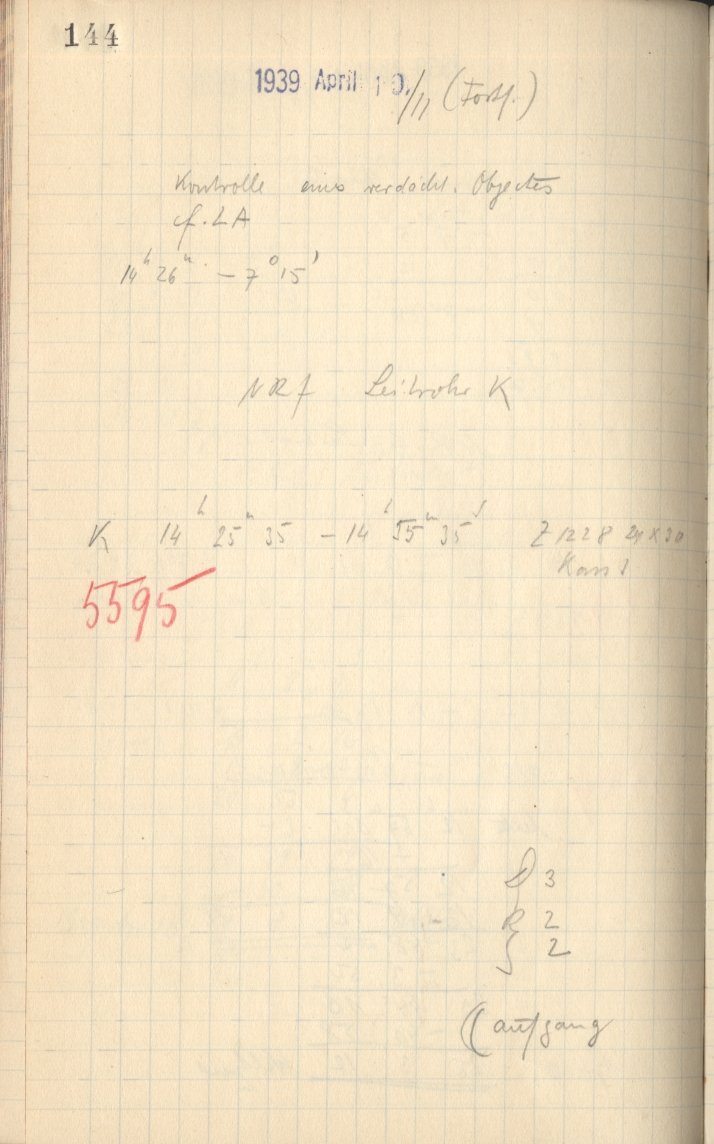 144
1939 April 10./11 (Forts.)
Kontrolle eines verdächt. Objectes
f. LA
14h 26m - 7° 15'
NRf Leitrohr K
K 14h 25m 35 - 14h 55m 35s Z 1228 24x30
5595
D 3
R 2
S 2
aufgang